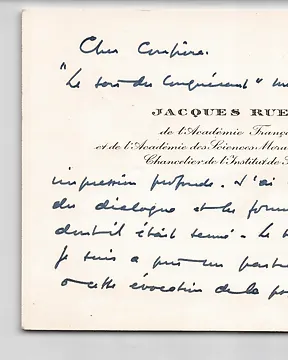 Cher Confrère.
"Le sort du Conquérant"
JACQUES RUE
de l'Académie França
et de l'Académie des Sciences Mora
Chancelier de l'Institut de
impression profonde. J'ai
du dialogue et la
dont il était semé. Le
je suis a pris un
a cette évocation de la